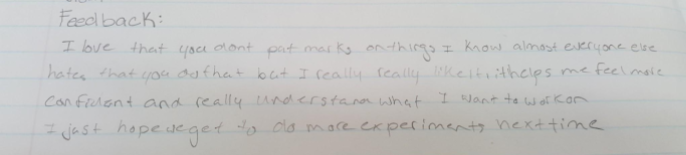 Feedback:
I love that you dont put marks on things I know almost everyone else
hates that you do that but I really really like it, it helps me feel more
confident and really understann what I want to work on
I just hope we get to do more experiments next time